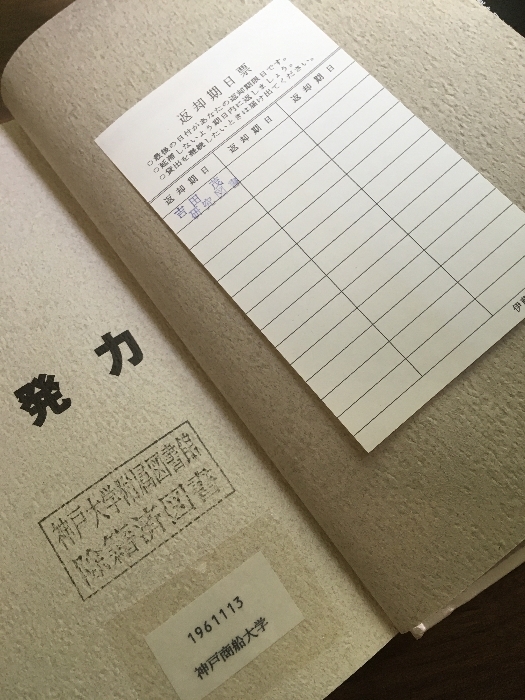 返却期日票
○最後の日付があなたの返却期限日です。
○延滞しないよう期日内に返しましょう。
○貸出を継続したいときは届け出てください。
返却期日
返却期日
返却期日
吉田 茂
研究図書
発力
神戸大学附属図書館
除籍済図書
1961113
神戸商船大学